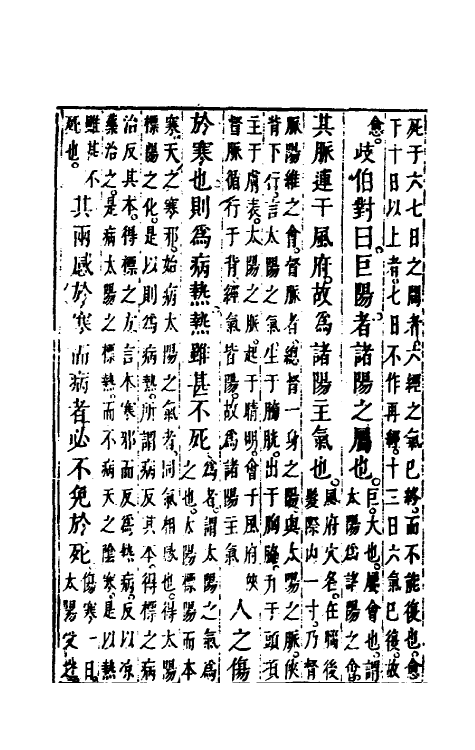 死于六七日之間者六經之氣已終而不能復也愈
于十日以上者七日不作再經十三日六氣已復故
愈
歧伯對曰巨陽者諸陽之屬也
巨大也屬會也謂
太陽爲諸陽之會
其脈連于風府故爲諸陽主氣也
風府穴名在腦後
髮際内一寸乃督
脈陽維之會督脈者總督一身之陽與太陽之脈俠
背下行言太陽之氣生于膀胱出于胸脇升于頭項
主于膚表太陽之脈起于睛明會于風府俠
督脈循行于背經氣皆陽故爲諸陽主氣
人之傷
於寒也則爲病熱熱雖甚不死
爲者謂太陽之氣爲
之也太陽標陽而本
寒天之寒邪始病太陽之氣者同氣相感也得太陽
標陽之化是以則爲病熱所謂病反其本得標之病
治反其本得標之方言本寒邪而反爲熱病反以凉
藥治之是病太陽之標熱而不病天之陰寒是以熱
雖甚不
死也
其兩感於寒而病者必不免於死
傷寒一日
太陽受之